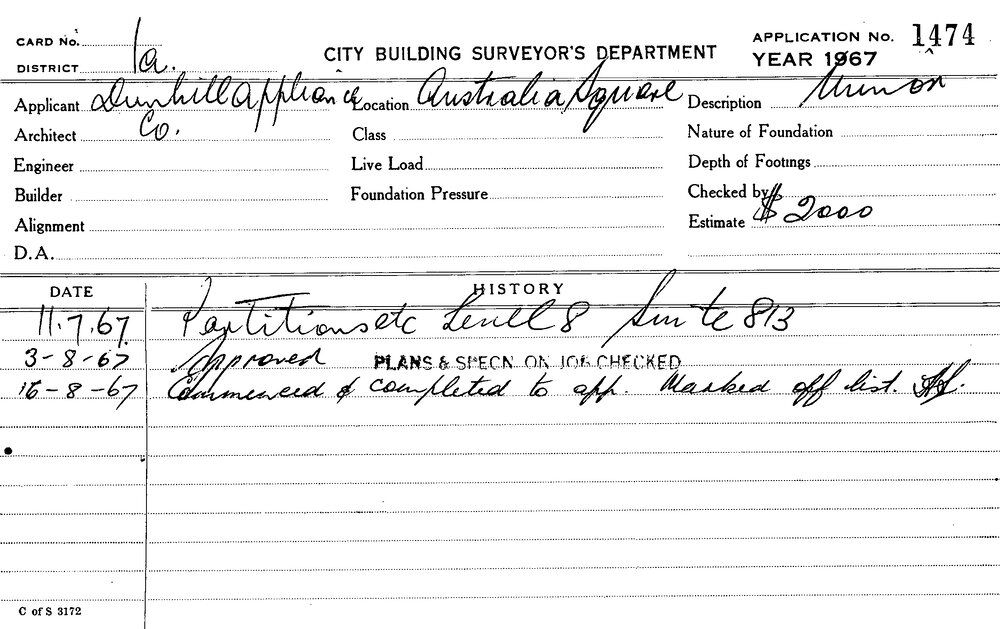 CARD No.
DISTRICT 1a.
CITY BUILDING SURVEYOR'S DEPARTMENT
APPLICATION No. 1474
YEAR 1967
Applicant Dunhill Appliance Co.
Location Australia Square
Description
Architect
Class
Nature of Foundation
Engineer
Live Load
Depth of Footings
Builder
Foundation Pressure
Checked by
Alignment
Estimate $ 2000
D.A.
DATE HISTORY
11.7.67 Partitions etc Level 8 Suite 813
3-8-67 Approved PLANS & SPECN. ON JOB CHECKED
16-8-67 Commenced & completed to app. Marked off list.
C of S 3172